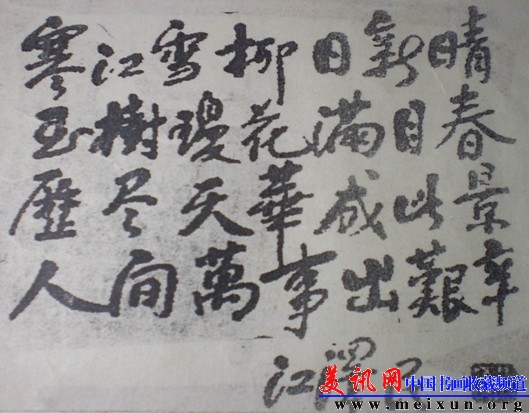 寒江雪柳日新晴
玉樹瓊花滿目春
歷尽天華成此景
人间萬事出艱辛
江澤民
美讯网 中国书画收藏频道
www.meixun.org